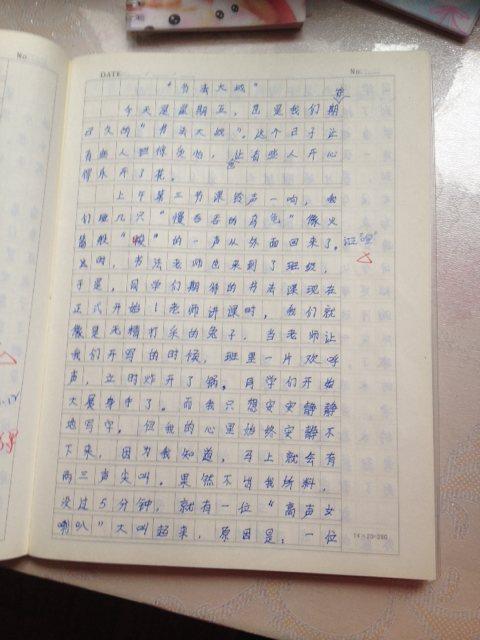 No.
DATE
No.
"书法大战"
今天是星期五,也是我们期
待
已久的"书法大战"。这个日子让
有些人担惊受怕,也让有些人开心
得乐开了花。
上午第三节课铃声一响,我
们班几只"慢吞吞的乌龟"像火
箭般"嗖"的一声从外面回来了。
这时,书法老师也来到了班级,
于是,同学们期待的书法课现在
正式开始!老师讲课时,我们就
像是无精打采的兔子,当老师让
我们开写的时候,班里一片欢呼
声,立时炸开了锅。同学们开始
大展身手了。而我只想安安静静
地写字。但我的心里始终安静不
下来,因为我知道,马上就会有
两三声尖叫。果然不出我所料,
没过5分钟,就有一位"高声女
喇叭"大叫起来,原因是:一位
14×20=280